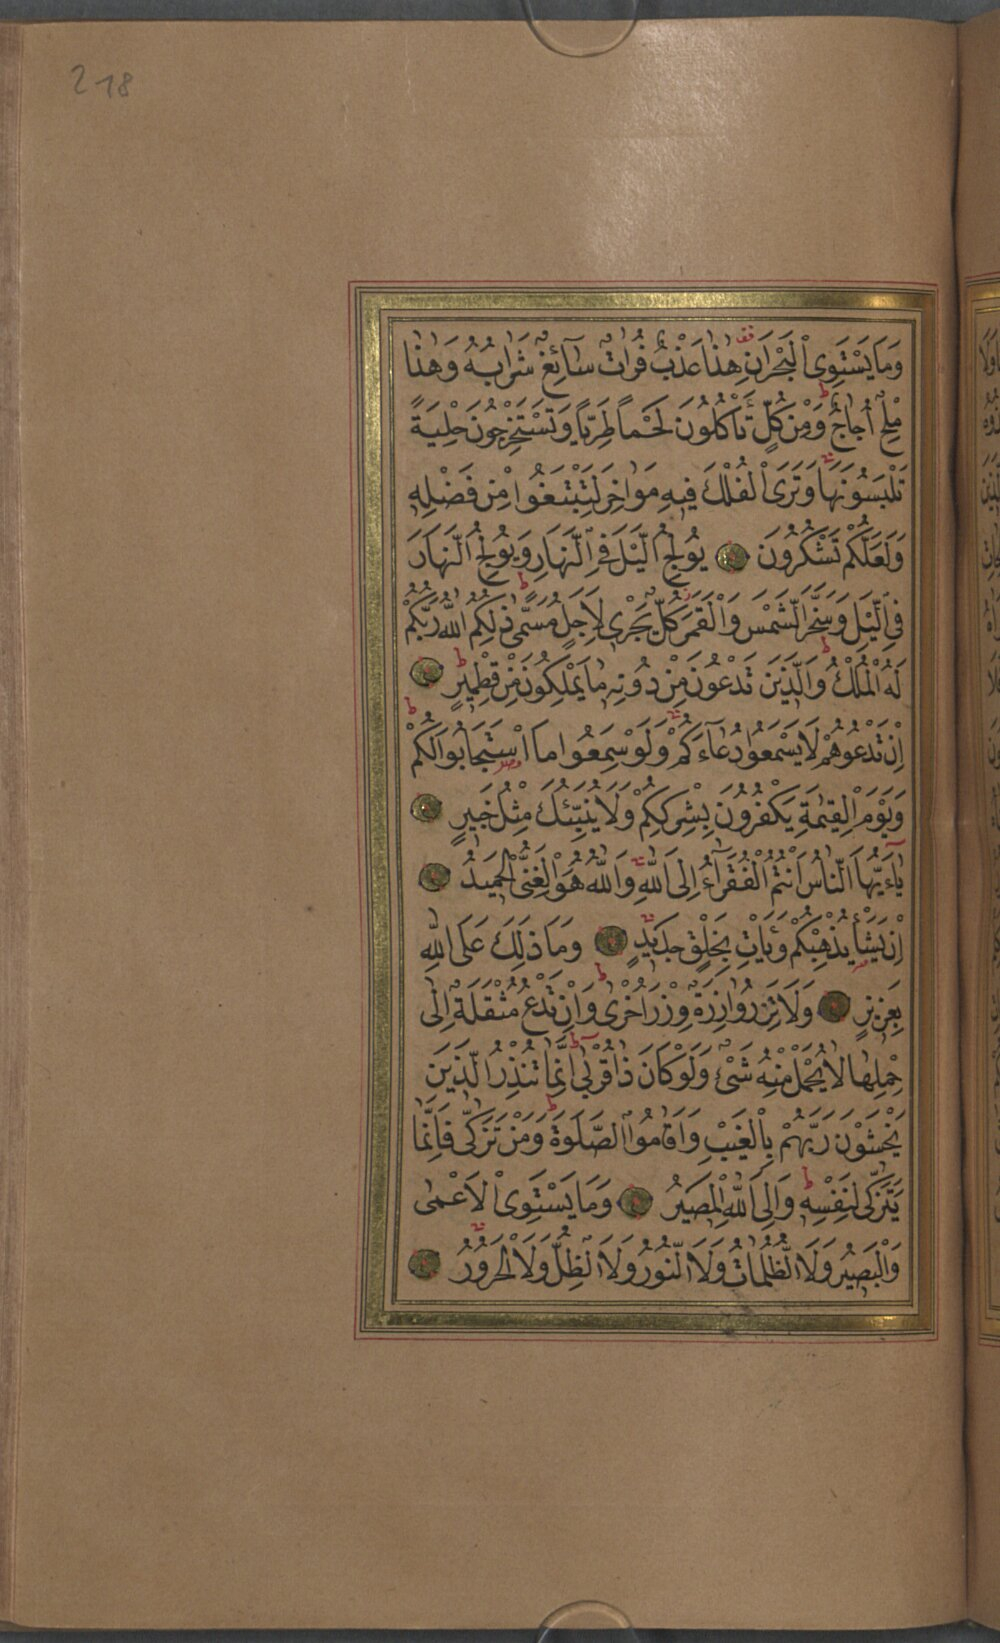 218
وَمَا يَسْتَوِى الْبَحْرَانِ هٰذَا عَذْبٌ فُرَاتٌ سَآئِغٌ شَرَابُهُ وَهٰذَا
مِلْحٌ اُجَاجٌ وَمِنْ كُلٍّ تَأْكُلُونَ لَحْمًا طَرِيًّا وَتَسْتَخْرِجُونَ حِلْيَةً
تَلْبَسُونَهَا وَتَرَى الْفُلْكَ فِيهِ مَوَاخِرَ لِتَبْتَغُوا مِنْ فَضْلِهِ
وَلَعَلَّكُمْ تَشْكُرُونَ يُولِجُ الَّيْلَ فِى النَّهَارِ وَيُولِجُ النَّهَارَ
فِى الَّيْلِ وَسَخَّرَ الشَّمْسَ وَالْقَمَرَ كُلٌّ يَجْرِى لِاَجَلٍ مُسَمًّى ذٰلِكُمُ اللّٰهُ رَبُّكُمْ
لَهُ الْمُلْكُ وَالَّذِينَ تَدْعُونَ مِنْ دُونِهِ مَا يَمْلِكُونَ مِنْ قِطْمِيرٍ
اِنْ تَدْعُوهُمْ لَا يَسْمَعُوا دُعَآءَكُمْ وَلَوْ سَمِعُوا مَا اسْتَجَابُوا لَكُمْ
وَيَوْمَ الْقِيٰمَةِ يَكْفُرُونَ بِشِرْكِكُمْ وَلَا يُنَبِّئُكَ مِثْلُ خَبِيرٍ
يٰٓاَيُّهَا النَّاسُ اَنْتُمُ الْفُقَرَآءُ اِلَى اللّٰهِ وَاللّٰهُ هُوَ الْغَنِىُّ الْحَمِيدُ
اِنْ يَشَأْ يُذْهِبْكُمْ وَيَأْتِ بِخَلْقٍ جَدِيدٍ وَمَا ذٰلِكَ عَلَى اللّٰهِ
بِعَزِيزٍ وَلَا تَزِرُ وَازِرَةٌ وِزْرَ اُخْرٰى وَاِنْ تَدْعُ مُثْقَلَةٌ اِلٰى
حِمْلِهَا لَا يُحْمَلْ مِنْهُ شَىْءٌ وَلَوْ كَانَ ذَا قُرْبٰى اِنَّمَا تُنْذِرُ الَّذِينَ
يَخْشَوْنَ رَبَّهُمْ بِالْغَيْبِ وَاَقَامُوا الصَّلٰوةَ وَمَنْ تَزَكّٰى فَاِنَّمَا
يَتَزَكّٰى لِنَفْسِهِ وَاِلَى اللّٰهِ الْمَصِيرُ وَمَا يَسْتَوِى الْاَعْمٰى
وَالْبَصِيرُ وَلَا الظُّلُمَاتُ وَلَا النُّورُ وَلَا الظِّلُّ وَلَا الْحَرُورُ